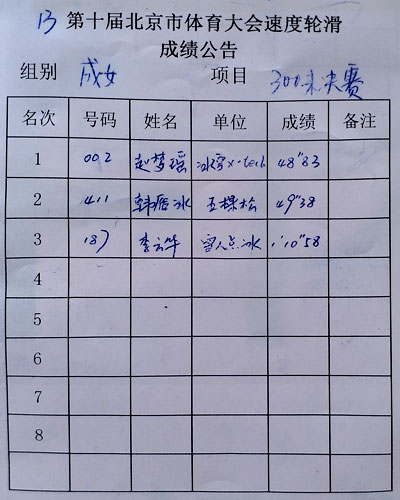 13 第十届北京市体育大会速度轮滑
成绩公告
组别 成女 项目 300米决赛
名次 号码 姓名 单位 成绩 备注
1 002 赵梦瑶 冰雪x-tech 48"83
2 411 韩 冰 五棵松 49"38
3 187 李云华 雪人点冰 1'10"58
4
5
6
7
8